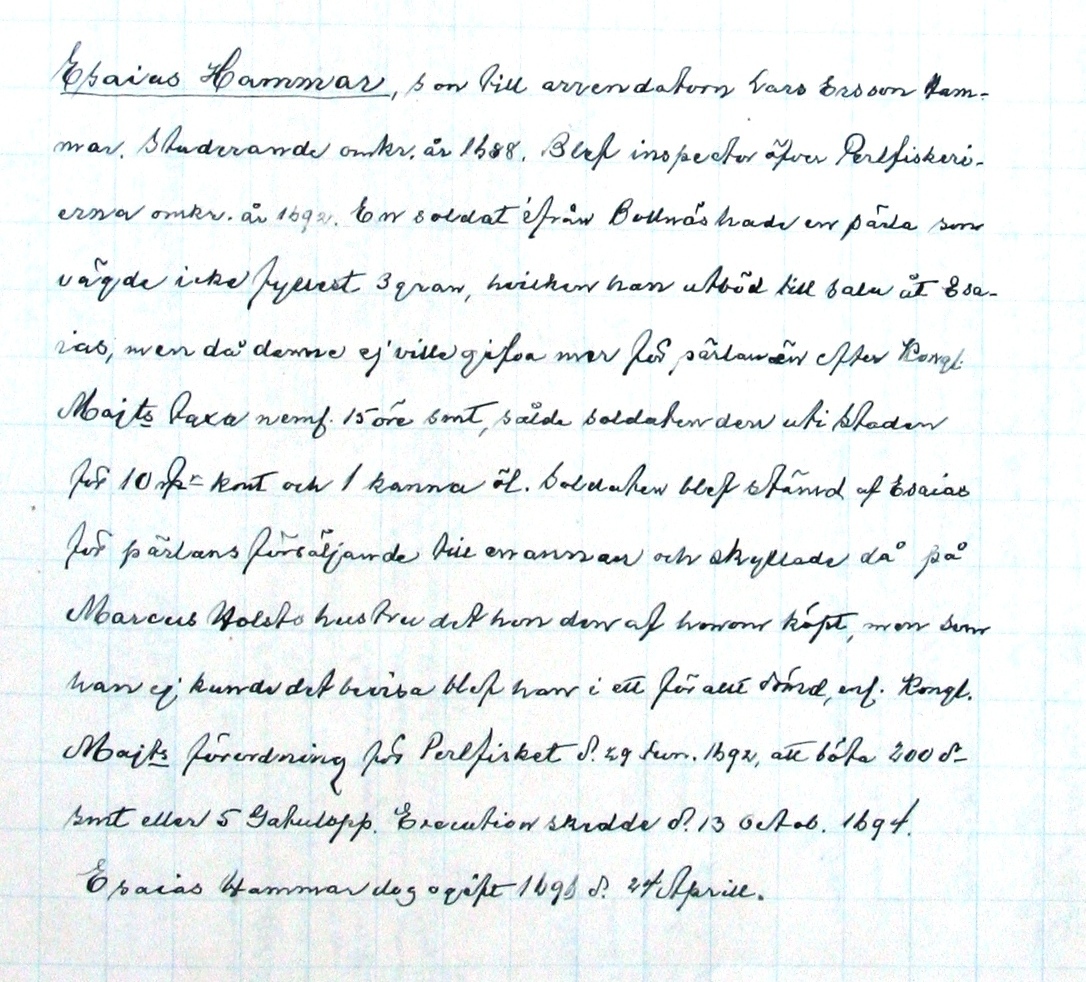 Esaias Hammar, son till arrendatorn Lars Ersson Ham-
mar. Studerande omkr. år 1688. Blef inspector öfver Perlfiskeri-
erna omkr. år 1692. En soldat ifrån Bollnäs hade en pärla som
vägde icke fyllest 3 gran, hvilken han utböd till salu åt Esa-
ias, men då denne ej ville gifva mer för pärlan än efter Kongl.
Majts Taxa nemf. 15 öre smt, sålde soldaten den uti staden
för 10 kmt och 1 kanna öl. Soldaten blef stämd af Esaias
för pärlans försäljande till en annan och skyllade då på
Marcus Holsts hustru det hon den af honom köpt, men som
han ej kunde det bevisa blef han i ett för allt dömd, enl. Kongl.
Majts förordning för Perlfisket d. 29 Jun. 1692, att böta 200 d-
smt eller 5 Gatulopp. Execution skedde d. 13 Octob. 1694.
Esaias Hammar dog ogift d. 24 Aprill.